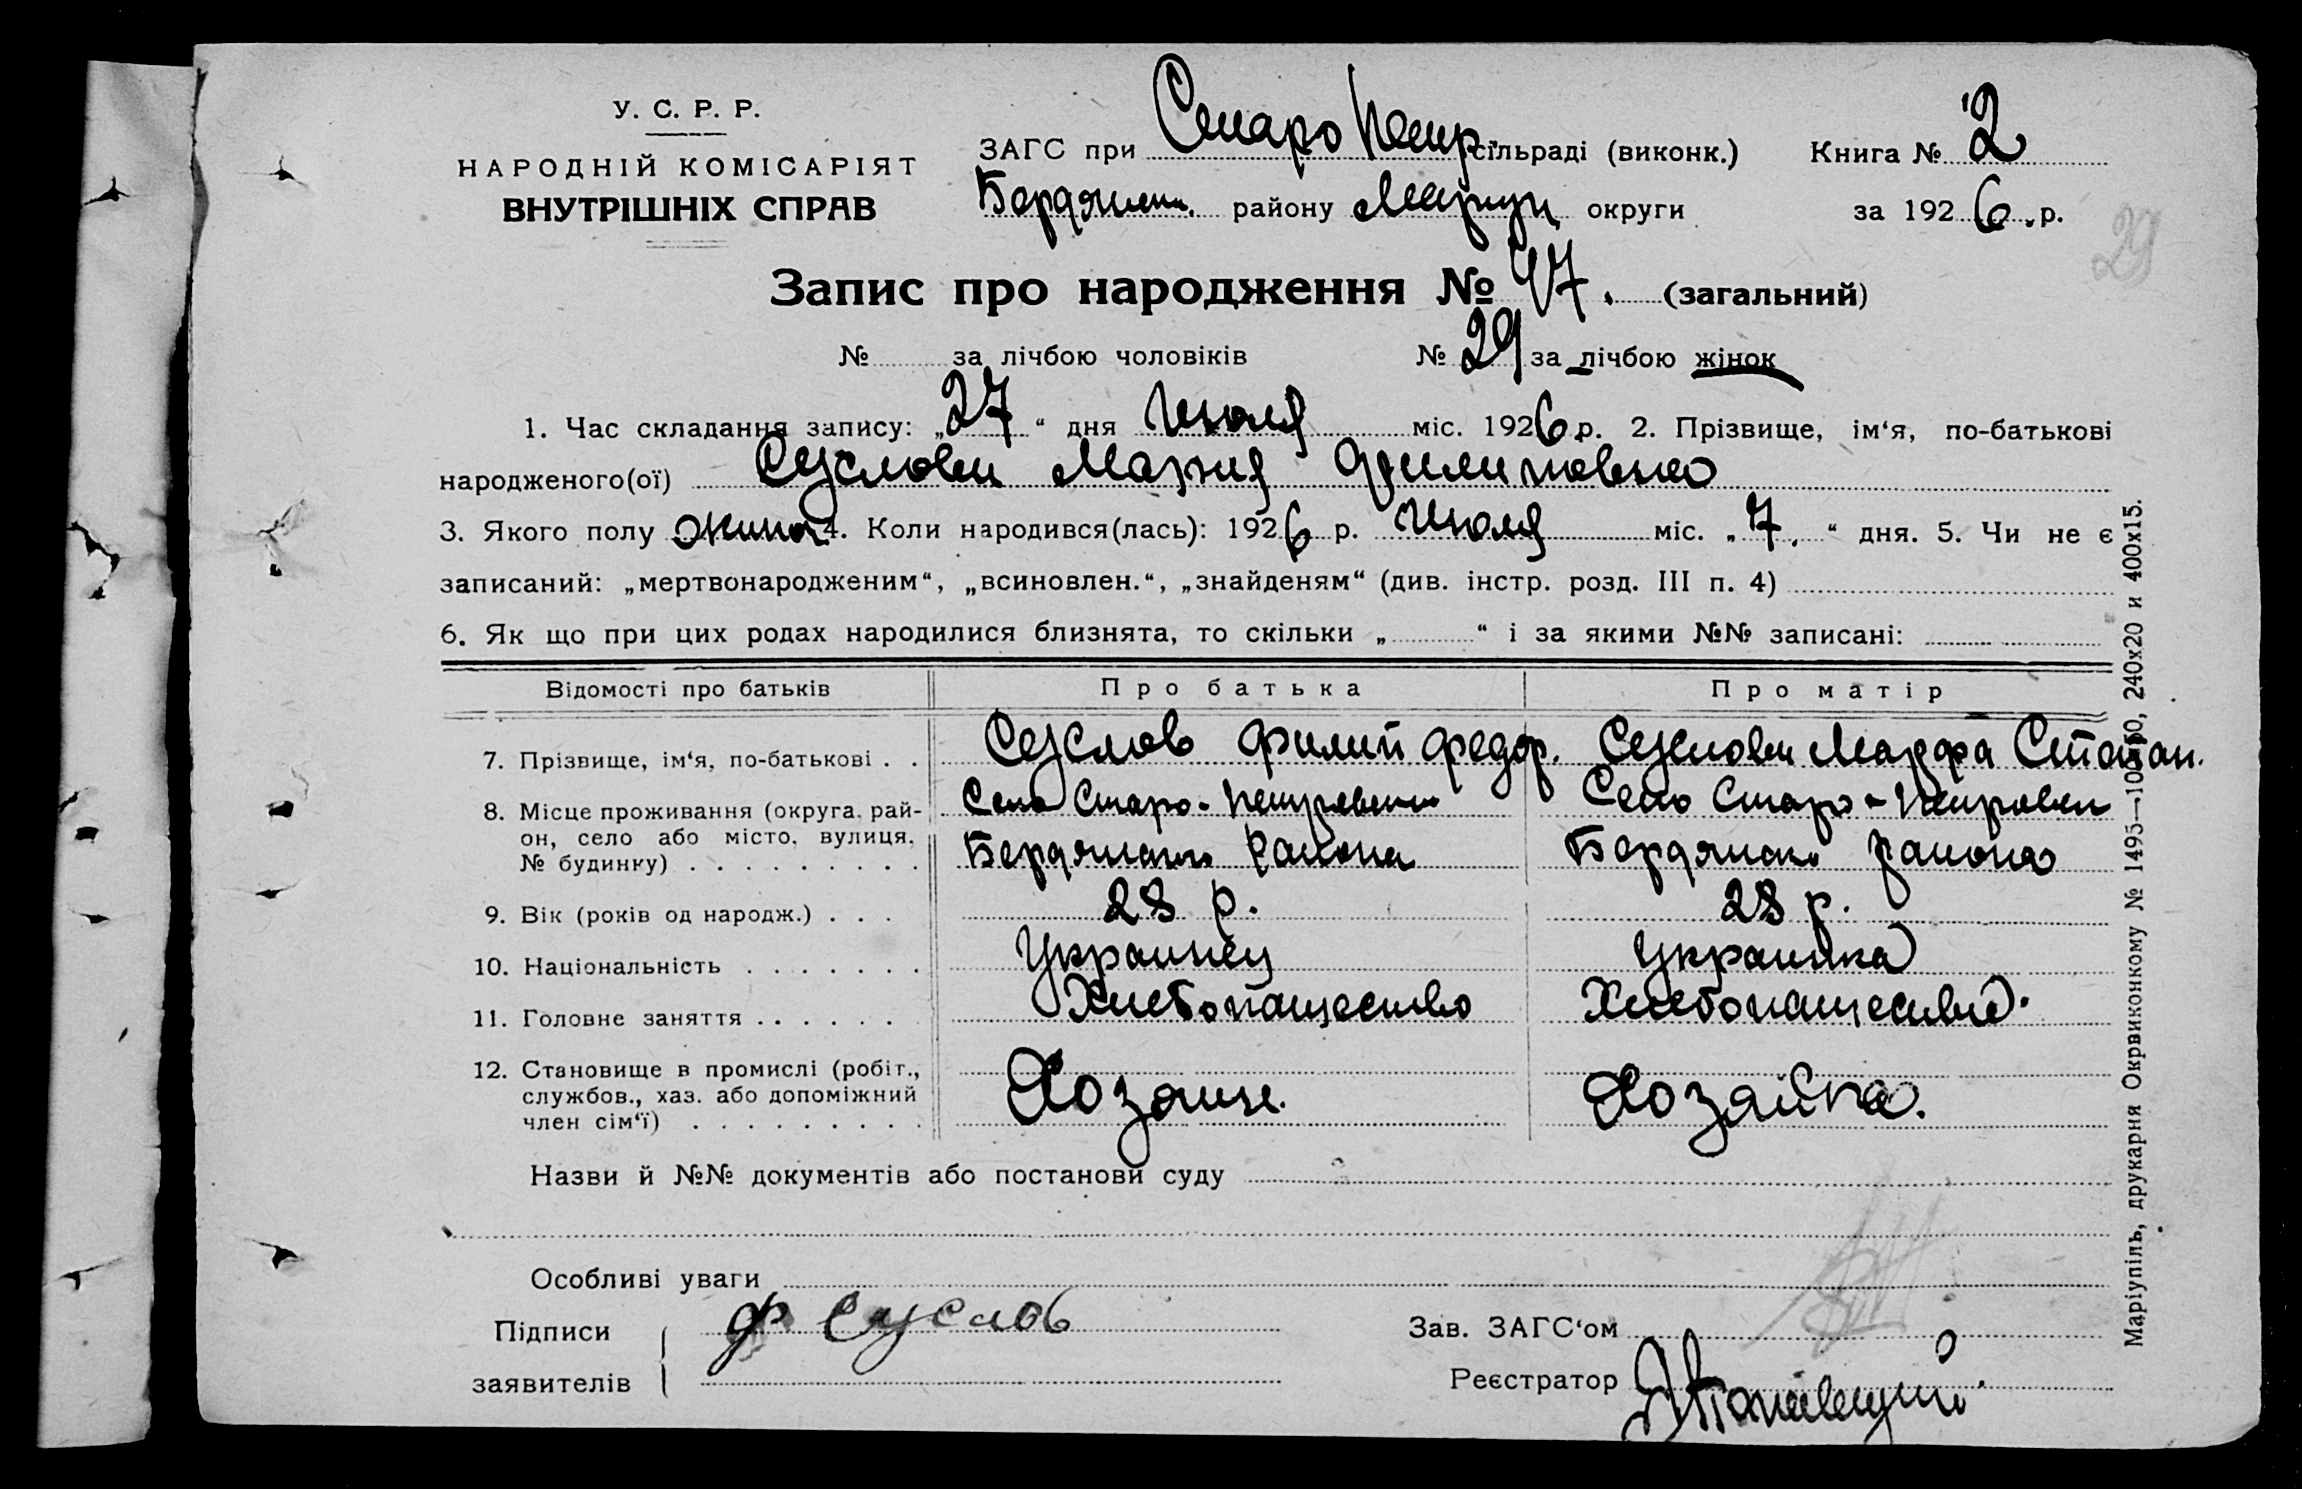 У. С. Р. Р.
НАРОДНІЙ КОМІСАРІЯТ
ВНУТРІШНІХ СПРАВ
ЗАГС при Старо Петр. сільраді (виконк.) Книга № 2
Бердянск. району Мариуп округи за 1926 р.
29
Запис про народження № 47. (загальний)
№ за лічбою чоловіків № 29 за лічбою жінок
1. Час складання запису: „27“ дня Июля міс. 1926 р. 2. Прізвище, ім‘я, по-батькові
народженого(ої) Суслова Мария Филиповна
3. Якого полу 4. Коли народився(лась): 1926 р. Июля міс. „7.“ дня. 5. Чи не є
записаний: „мертвонародженим“, „всиновлен.“, „знайденям“ (див. інстр. розд. III п. 4)
6. Як що при цих родах народилися близнята, то скільки „ “ і за якими №№ записані:
Відомості про батьків Про батька Про матір
7. Прізвище, ім‘я, по-батькові . . Суслов Филип Федор. Суслова Марфа Степан.
8. Місце проживання (округа, рай-
он, село або місто, вулиця,
№ будинку) . . . . . . . . .
Село Старо-Петровск Село Старо-Петровск
Бердянск района Бердянск района
9. Вік (років од народж.) . . . 28 р. 28 р.
10. Національність . . . . . . . Украинец Украинка
11. Головне заняття . . . . . . Хлебопашество Хлебопашество.
12. Становище в промислі (робіт.,
службов., хаз. або допоміжний
член сім‘ї) . . . . . . . . .
Хозяин. Хозяйка.
Назви й №№ документів або постанови суду
Особливі уваги
Підписи
заявителів
Ф Суслов
Зав. ЗАГС‘ом
Реєстратор
Маріупіль, друкарня Окрвиконкому № 1495—100, 240х20 и 400х15.